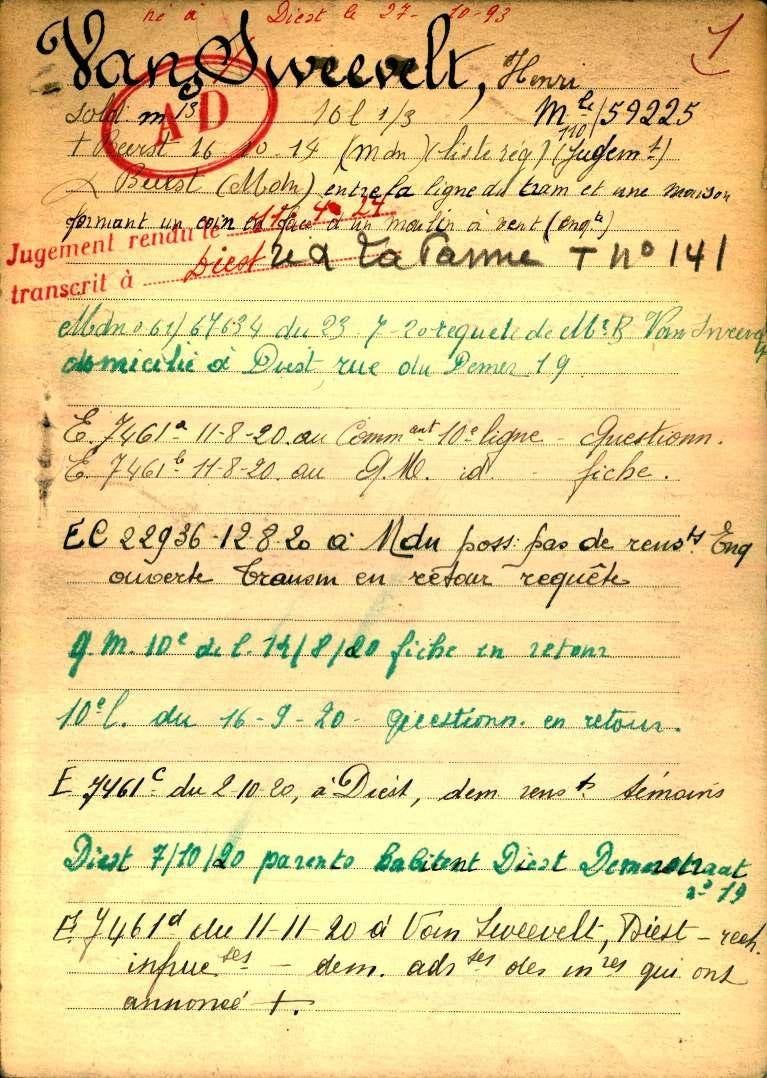 né à Diest le 27-10-93
1
Van Sweevelt, Henri
sold. m 13 10 l 1/3 Mle 110/59225
AD
+ Beerst 16-10-14 (Mdn) (liste rég) (Jugemt)
Beerst (Mdn) entre la ligne du tram et une maison
formant un coin en face d'un moulin à vent (enqte)
Jugement rendu le 11-4-24
transcrit à Diest
ré à La Panne + n° 141
Mdn 061/67634 du 23-7-20 requete de Mr B Van Sweevelt
domicilié à Diest, rue du Demer 19
E. 7461a 11-8-20 au Commant 10e ligne - Questionn.
E. 7461b 11-8-20 au Q.M. id. - fiche.
EC 22936-12 8 20 à Mdn poss: pas de rensts. Enq
ouverte transm en retour requête
Q.M. 10e de l. 14/8/20 fiche en retour
10e l. du 16-9-20- Questionn. en retour.
E 7461c du 2-10-20, à Diest, dem rensts témoins
Diest 7/10/20 parents habitent Diest Demerstraat
n° 19
E. 7461d du 11-11-20 à Van Sweevelt, Diest - rech.
infrueses - dem. adrses des mres qui ont
annoncé +.